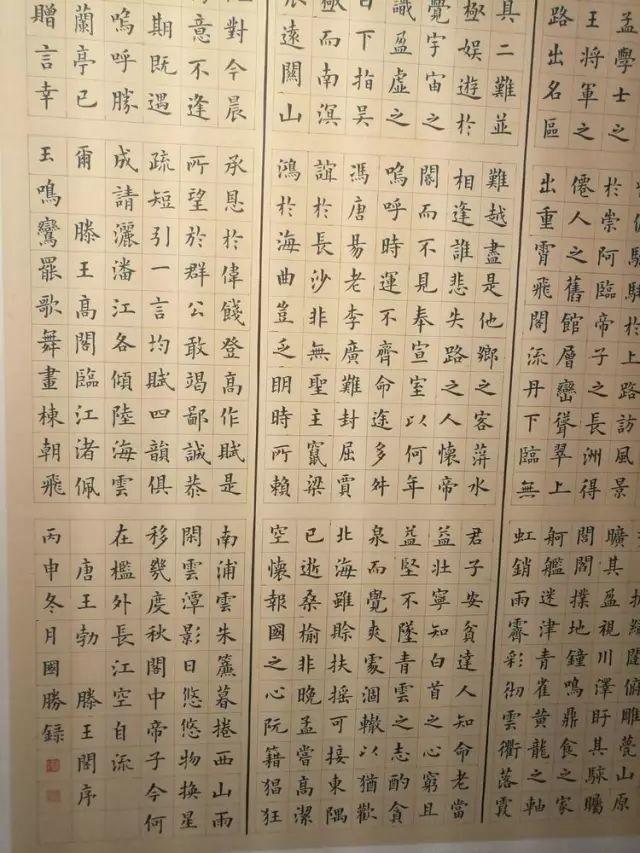 孟學士之
王將軍之
路出名區
於上路訪風景
於崇阿臨帝子之長洲得
僊人之舊館層巒聳翠上
出重霄飛閣流丹下臨無
闥俯雕甍山原
曠其盈視川澤盱其駭矚
閭閻撲地鐘鳴鼎食之家
舸艦迷津青雀黃龍之軸
虹銷雨霽彩徹雲衢落霞
具二難並
極娛遊於
覺宇宙之
識盈虛之
日下指吳
極而南溟
辰遠關山
難越盡是他鄉之客萍水
相逢誰悲失路之人懷帝
閽而不見奉宣室以何年
嗚呼時運不齊命途多舛
馮唐易老李廣難封屈賈
誼於長沙非無聖主竄梁
鴻於海曲豈乏明時所賴
君子安貧達人知命老當
益壯寧知白首之心窮且
益堅不墜青雲之志酌貪
泉而覺爽處涸轍以猶歡
北海雖賒扶搖可接東隅
已逝桑榆非晚孟嘗高潔
空懷報國之心阮籍猖狂
對今晨
意不逢
期既遇
嗚呼勝
蘭亭已
贈言幸
承恩於偉餞登高作賦是
所望於群公敢竭鄙誠恭
疏短引一言均賦四韻俱
成請灑潘江各傾陸海雲
爾 滕王高閣臨江渚佩
玉鳴鸞罷歌舞畫棟朝飛
南浦雲朱簾暮捲西山雨
閑雲潭影日悠悠物換星
移幾度秋閣中帝子今何
在檻外長江空自流
唐王勃 滕王閣序
丙申冬月國勝錄